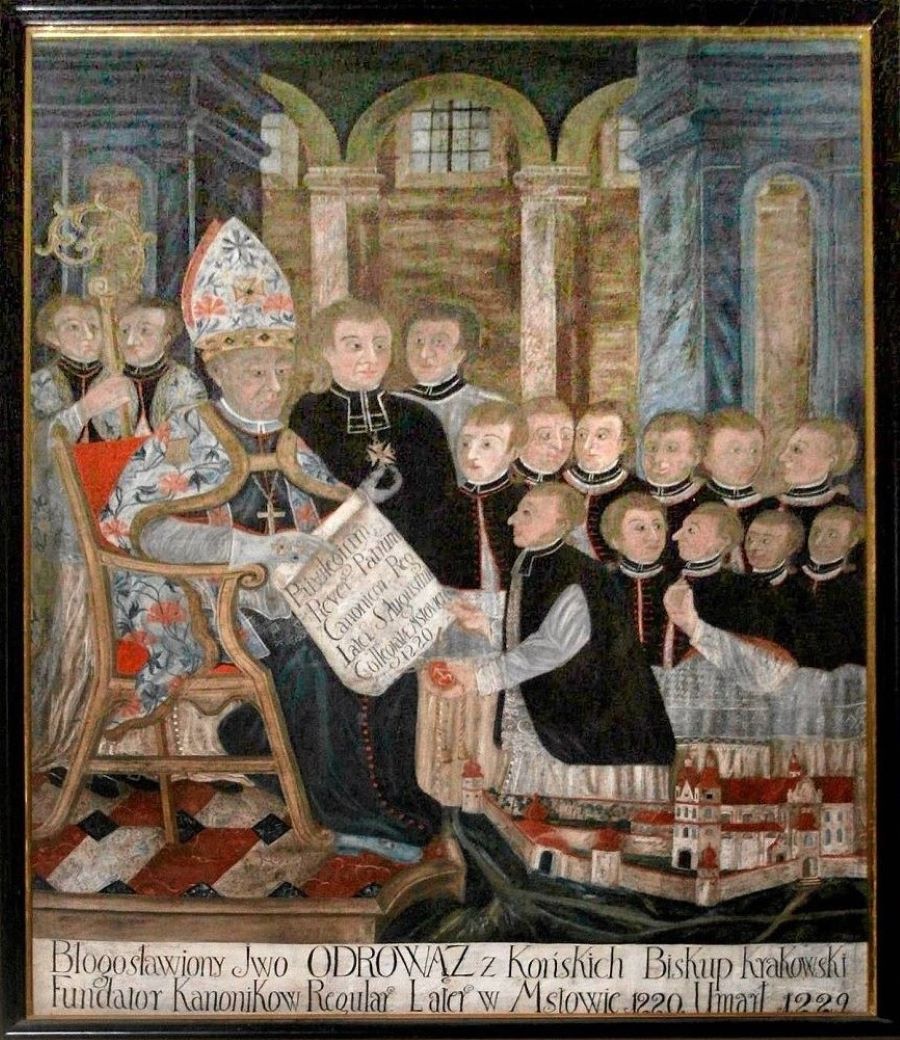 Privilegium
Rever: Patrum
Canonicor Reg
Later S Augustini
Collegiate Mstovien
1220
Błogosławiony Jwo ODROWĄZ z Końskich Biskup Krakowski
Fundator Kanonikow Regular Later w Mstowie 1220 Umarł 1229